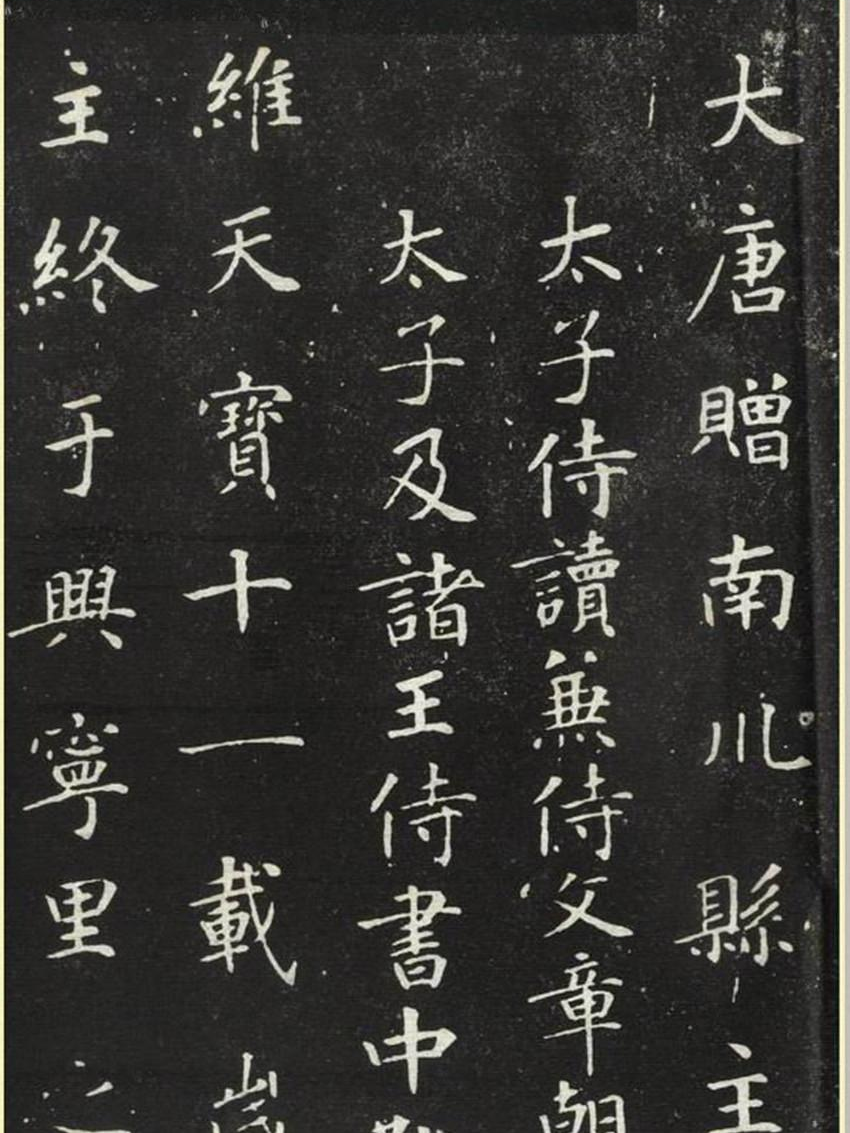 大唐贈南川縣主
太子侍讀兼侍文章朝
太子及諸王侍書中
維天寶十一載嵗
主終于興寧里之